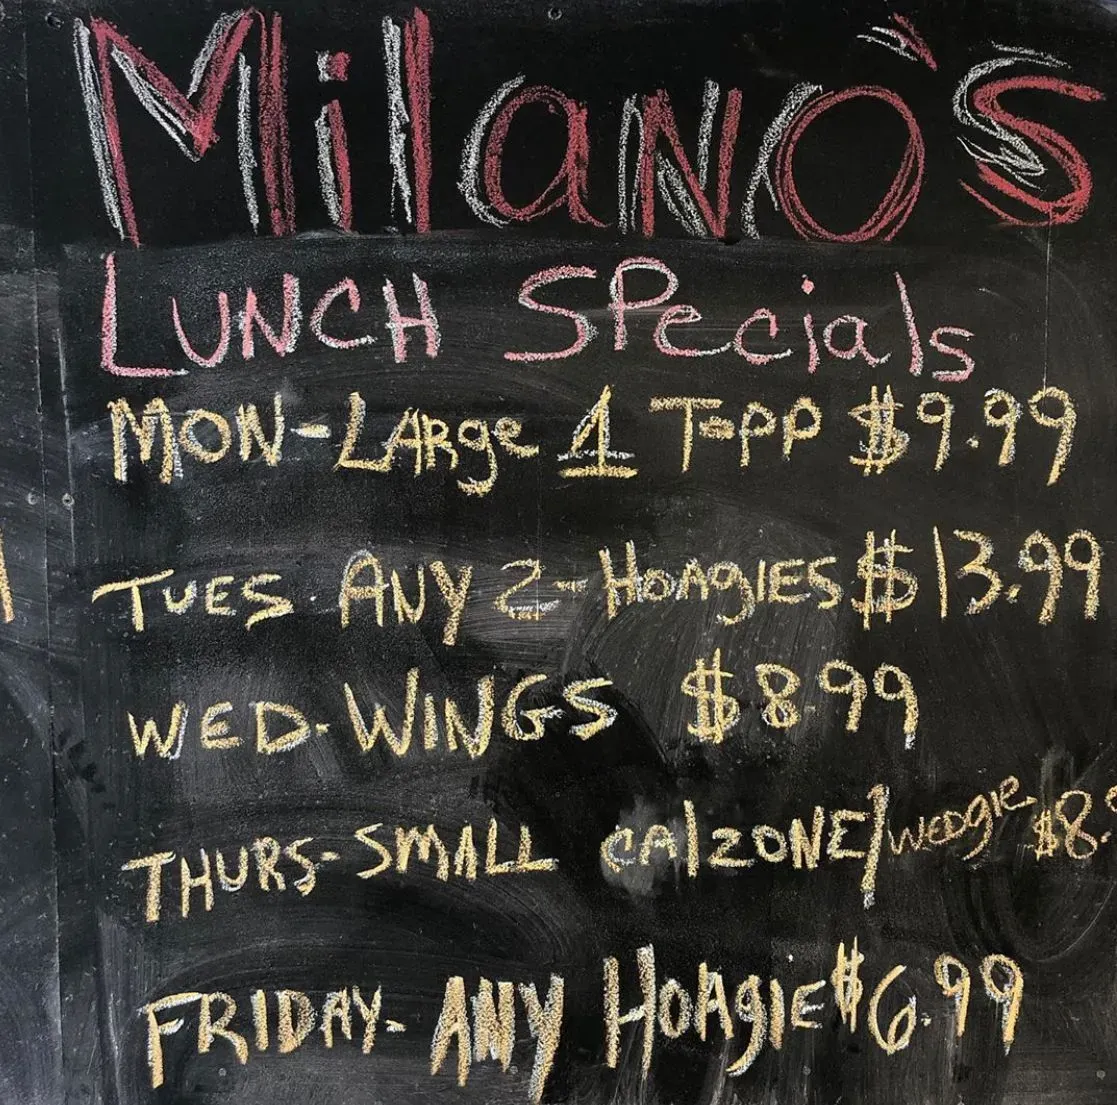 Milano's
LUNCH SPecials
MON-LARge 1 TOPP $9.99
TUES. ANY 2-HOAgIES $13.99
WED-WINGS $8.99
THURS-SMALL CAlZONE/WEDgIE $8.
FRIDAY-ANY HOAgIE $6.99